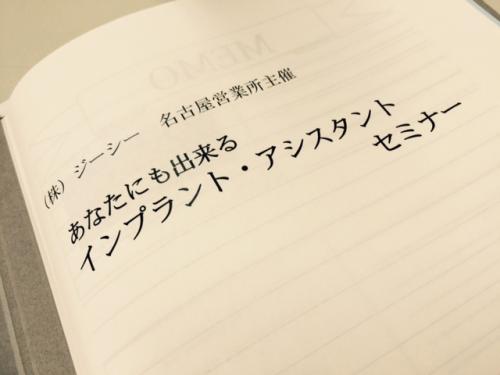 (株) ジーシー 名古屋営業所主催
あなたにも出来る
インプラント・アシスタント
セミナー
MEMO